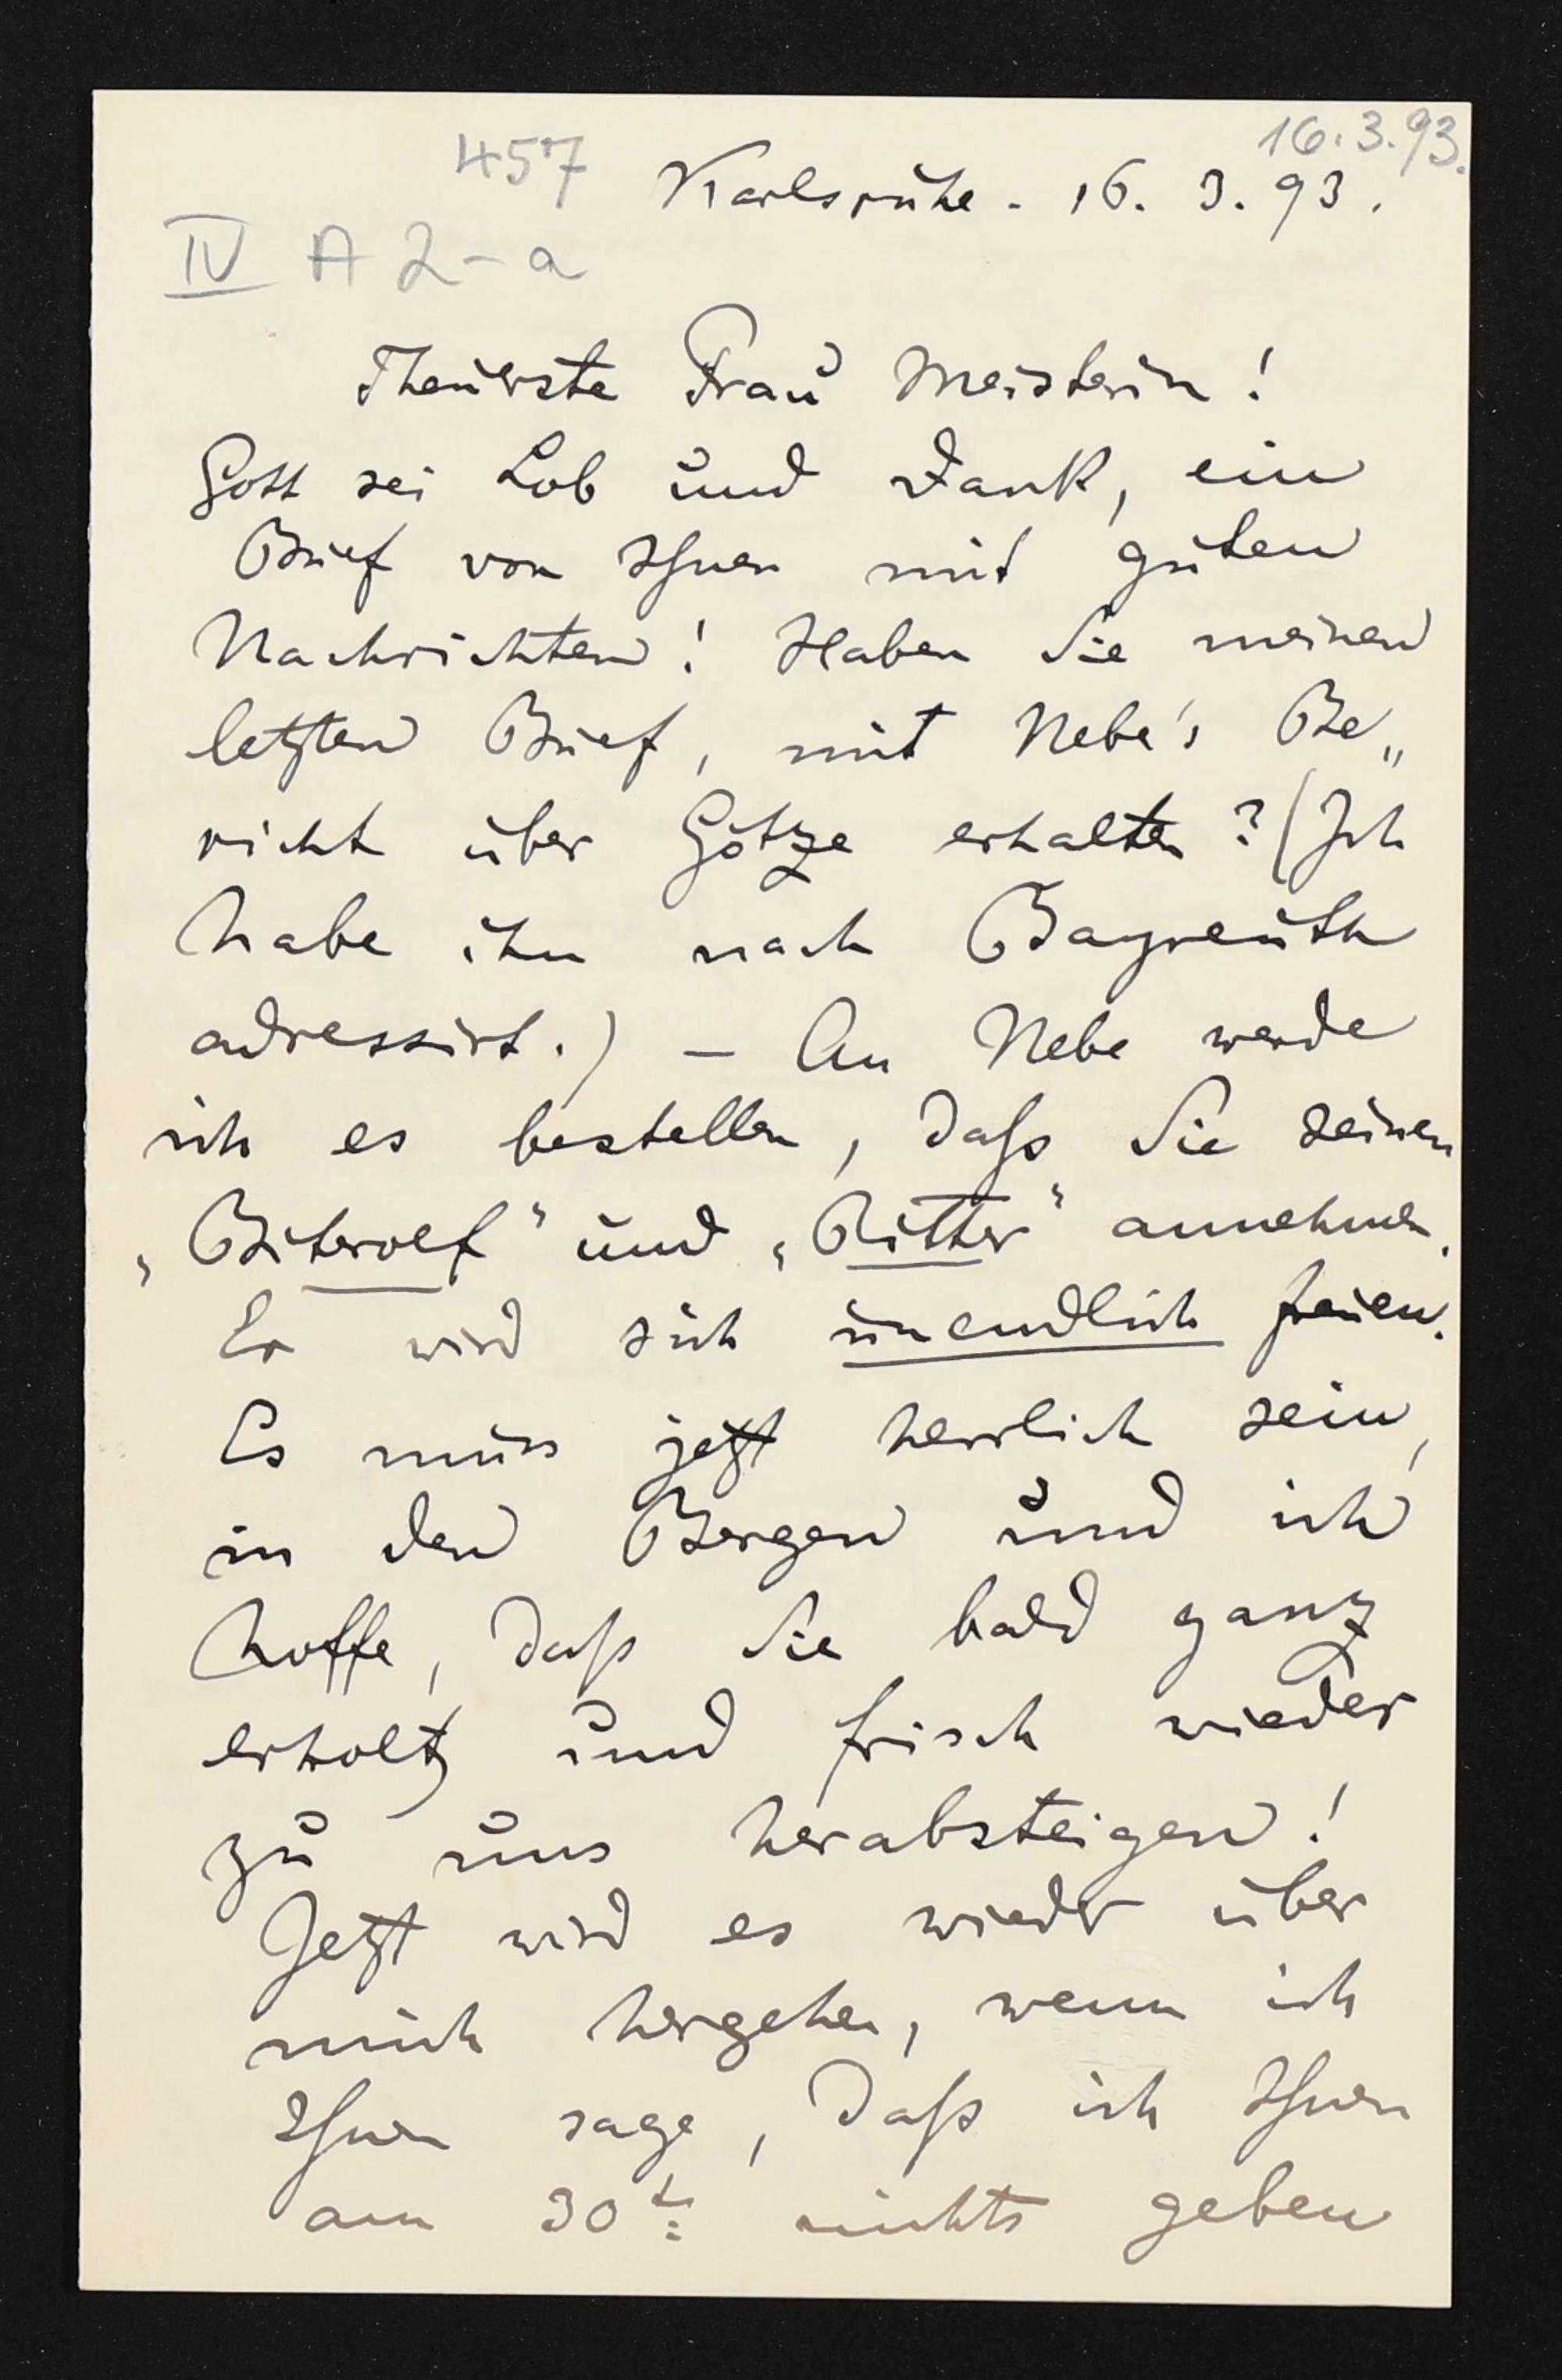 16.3.93.
457 Karlsruhe. 16. 3. 93.
IV A 2-a
Theuerste Frau Meisterin!
Gott sei Lob und Dank, ein
Brief von Ihnen mit guten
Nachrichten! Haben Sie meinen
letzten Brief, mit Nebe's Be„
richt über Götze erhalten? (Ich
habe ihn nach Bayreuth
adressirt.) — An Nebe werde
ich es bestellen, daß Sie seinen
„Biterolf" und „Ritter" annehmen.
Er wird sich unendlich freuen.
Es muss jetzt herrlich sein,
in den Bergen und ich
hoffe, daß Sie bald ganz
erholt und frisch wieder
zu uns herabsteigen!
Jetzt wird es wieder über
mich hergehen, wenn ich
Ihnen sage, daß ich Ihnen
am 30ten nichts geben